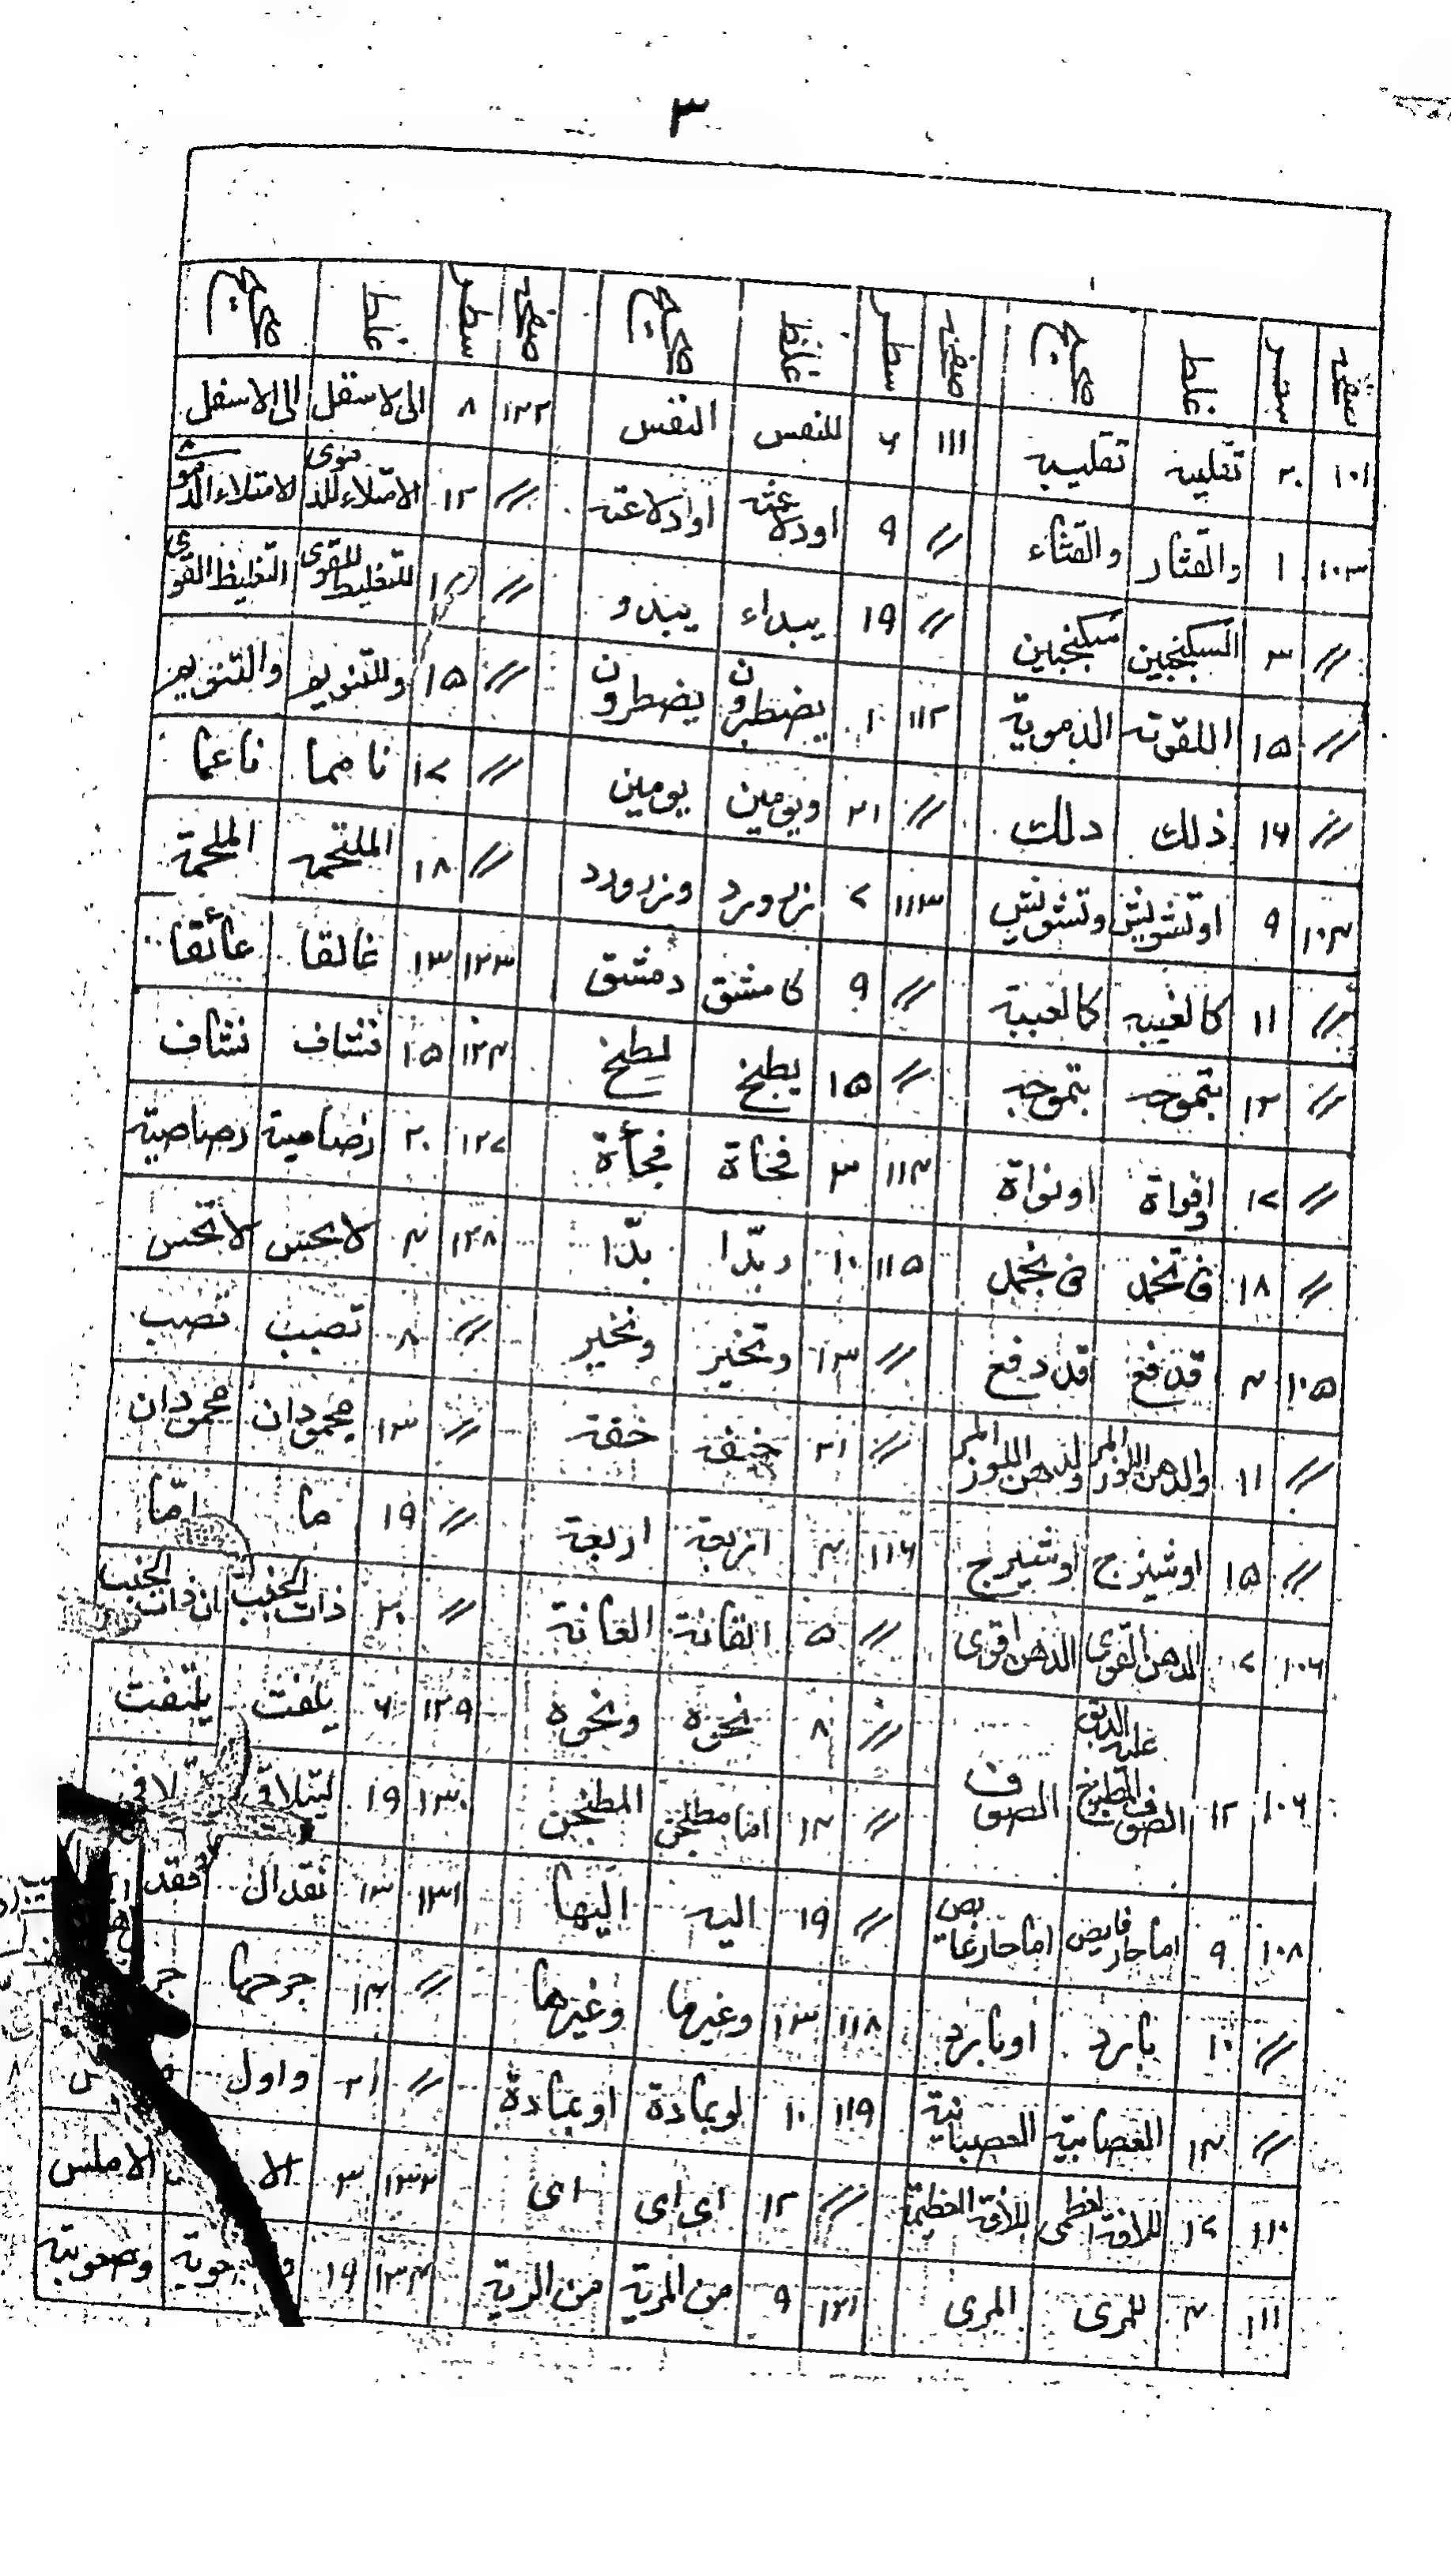 ٣
صفحه سطر غلط صحیح صفحه سطر غلط صحیح صفحه سطر غلط صحیح
١٠١ ٢٠ تقلیبه تقلیبه ١١١ ٦ للنفس النفس ١٢٢ ٨ الی لاسقل الی الاسفل
١٠٣ ١ والقثار والقثاء // ٩ اودلاعته اوادلاعته // ١٢ الامتلاء للذموی الامتلاء الدموی
// ٣ السکنجبین سکنجبین // ١٩ یبداء یبدو // للتغلیط للقوی التغلیظ القوی
// ١٥ اللقوته الدمویة ١١٢ ١٠ یضطبرون یضطرون // ١٥ وللتنویم والتنویم
// ١٦ ذلك دلك // ٢١ ویومین یومین // ١٧ ناصما ناعما
١٠٤ ٩ اوتشویش وتشویش ١١٣ ٧ زرورد وزرورد // ١٨ الملتحمه الملحمة
// ١١ كالغیبه كالعیبة // ٩ كامشق دمشق ١٢٣ ١٣ غالقا عائقا
// ١٢ بتموجه بتموجه // ١٥ یطبخ لطبخ ١٢٤ ١٥ نشاف نشاف
// ١٧ افواة اونواة ١١٤ ٣ فخاة فجأة ١٢٧ ٢٠ رضامیة رصاصیة
// ١٨ فی نخمد فی نجمد ١١٥ ١٠ ربدا بدا ١٢٨ ٤ لا یحبس لا تحس
١٠٥ ٤ قد فع قد دفع // ١٣ وتخیر ونخیر // ٨ تصبب تصب
// ١١ والدهن اللوز المر ولدهن اللوز المر // ٢١ خفقه خفة // ١٣ مجمودان محمودان
// ١٥ اوشیزج اوشیرج ١١٦ ٤ ازبعة اربعة // ١٩ ما اما
١٠٦ ٧ الدهن القوی الدهن اقوی // ٥ الفانة العانة // ٢٠ ذات الجنب ان ذات الجنب
١٠٦ ١٢ الصوف الصوف // ٨ نحوه ونحوه ١٢٩ ٦ یلفت یلتفت
// ١٤ اما مطلخن المطلخن ١٣٠ ١٩ لیتلافی
١٠٨ ٩ اما حار قابض اما حار غابص // ١٩ الیه الیها ١٣١ ١٣ نقدان فقد
// ١٠ بارد اوبارد ١١٨ ١٣ وغیرها وغیرها // ١٤ جرحها
// ١٤ الغصابیة العصبانیة ١١٩ ١٠ لوبمادة اوبمادة // ٢١ واول
١١٠ ١٧ للافة العظمی للافة العظیمة // ١٢ ای ای ای ١٣٣ ٣ الاملس
١١١ ٤ للمری المری ١٢١ ٩ من المریة من الریة ١٣٤ ١٩ وصحوبیة